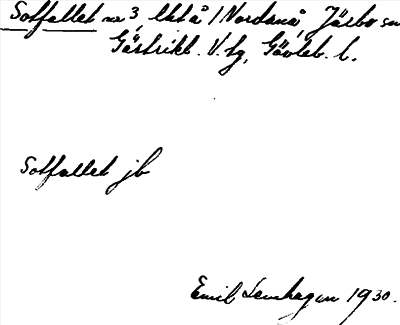 Sotfallet nr 3 Utlå i Nordanå, Järbo sn
Gästrikl. V. tg, Gävleb. l.
Sotfallet jb
Emil Lenhagen 1930.